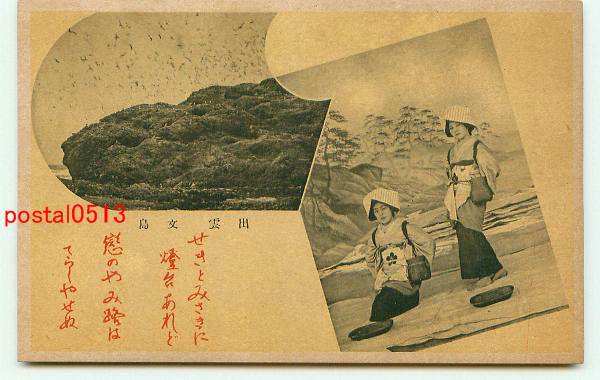 島文雲出
せきとみさきに
燈台あれど
戀のやみ路は
てらしやせぬ
postal0513